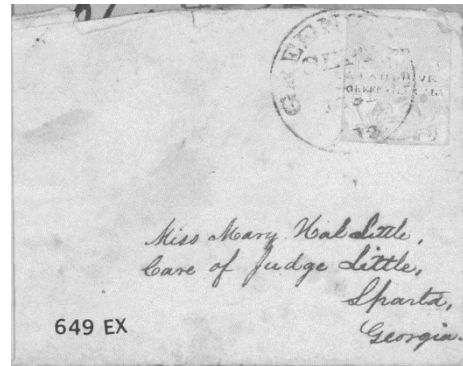 GREENV
Miss Mary Hal Little,
Care of Judge Little,
Sparta,
Georgia.
649 EX